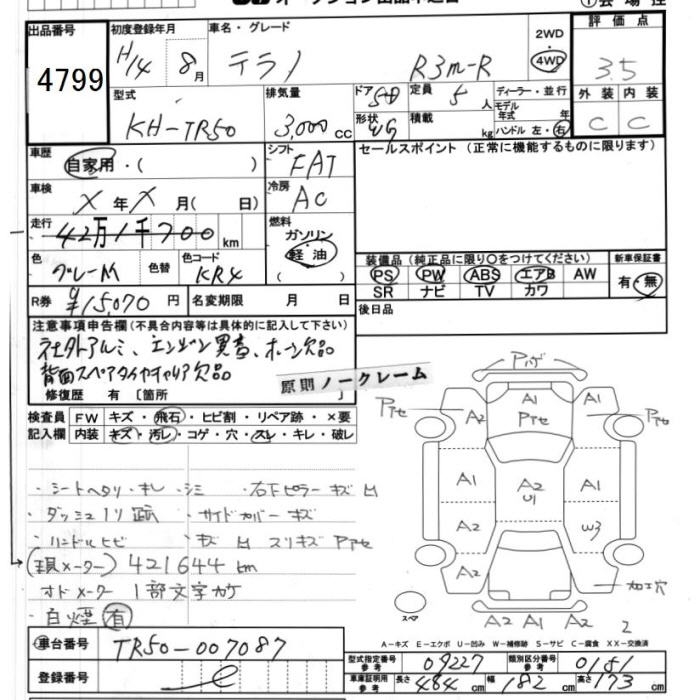 出品番号
4799
初度登録年月
H14 8月
車名・グレード
テラノ R3m-R
2WD
4WD
評価点
3.5
型式
KH-TR50
排気量
3,000cc
ドア 5D
形状 WG
定員 5人
積載 kg
ディーラー・並行
モデル年式 年
ハンドル 左・右
外装 内装
C C
車歴
自家用・( )
シフト
FAT
セールスポイント（正常に機能するものに限ります）
車検
X年X月( 日)
冷房
AC
走行
42万1千700km
燃料
ガソリン
軽油
色
グレーM
色替
色コード
KR4
装備品（純正品に限り○をつけてください）
PS PW ABS エアB AW
SR ナビ TV カワ
新車保証書
有・無
R券 ¥15,070円
名変期限 月 日
後日品
注意事項申告欄（不具合内容等は具体的に記入して下さい）
社外アルミ、エンジン異音、ホーン欠品
背面スペアタイヤキャリア欠品
修復歴 有 〔箇所 〕
原則ノークレーム
検査員記入欄
FW キズ・飛石・ヒビ割・リペア跡・×要
内装 キズ・汚レ・コゲ・穴・スレ・キレ・破レ
・シートヘタリ・キレ・シミ ・右下ピラーキズ
・ダッシュノリ跡 ・サイドカバーキズ
・ハンドルヒビ スリキズ アアセ
(現メーター) 421644km
オドメーター 1部文字カケ
・白煙 有
A1
A2 アアセ
アアセ
アアセ
A1 A2 U1 A1
A2 W3
A2
加工穴
スペア
A2 A1 A2 2
車台番号
TR50-007087
登録番号
A－キズ E－エクボ U－凹み W－補修跡 S－サビ C－腐食 XX－交換済
型式指定番号 参考
09227
類別区分番号 参考
0151
車庫証明用 参考
長さ 484cm 幅 182cm 高さ 173cm